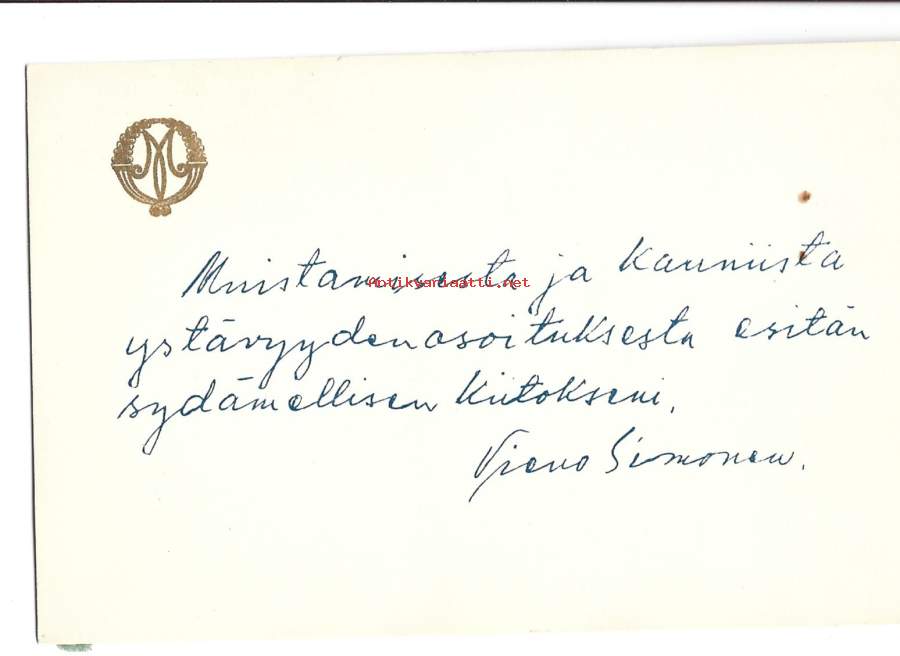 Muistamisesta ja kauniista
Antikvariaatti.net
ystävyydenosoituksesta esitän
sydämellisen kiitokseni.
Vieno Simonen.